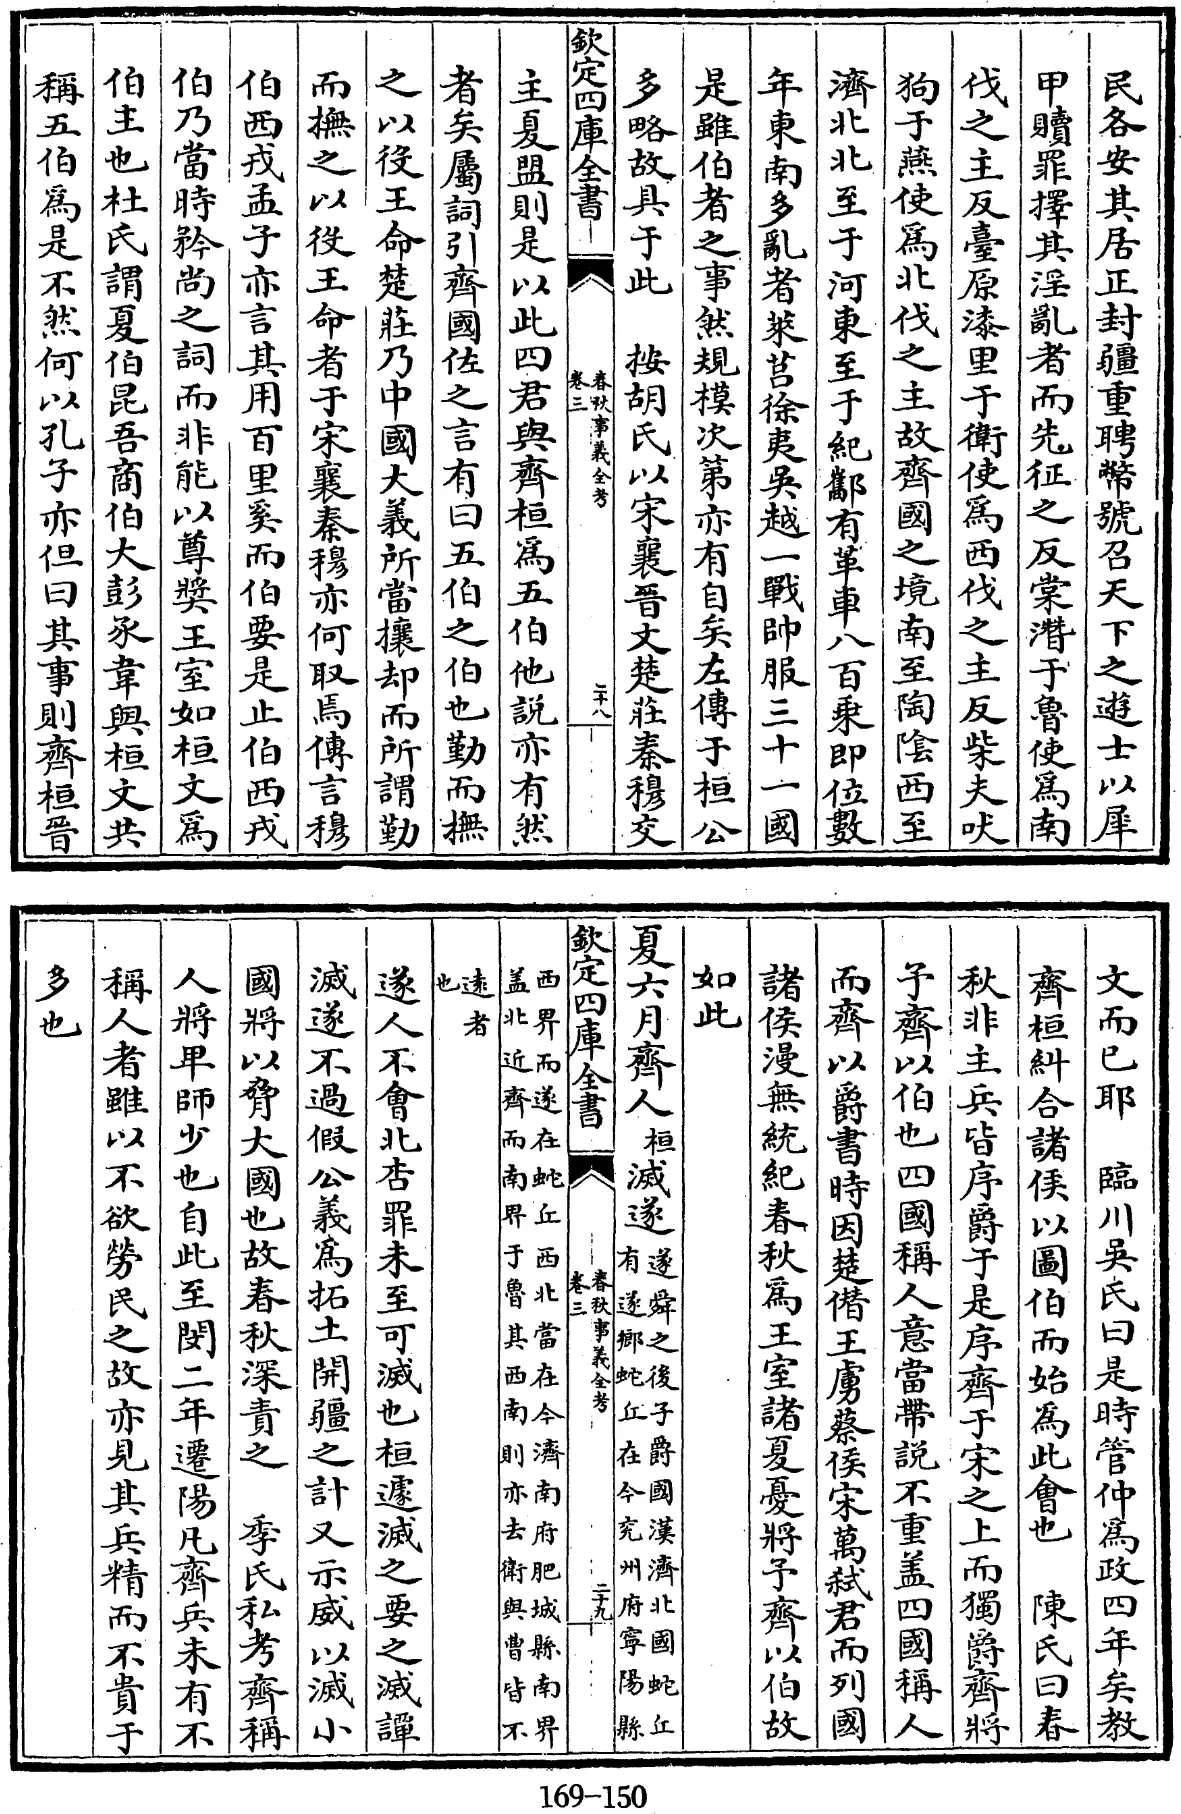 民各安其居正封疆重聘幣號召天下之遊士以犀
甲贖罪擇其淫亂者而先征之反棠濳于魯使爲南
伐之主反臺原漆里于衛使爲西伐之主反柴夫吠
狗于燕使爲北伐之主故齊國之境南至陶隂西至
濟北北至于河東至于紀酅有革車八百乗即位數
年東南多亂者萊莒徐夷吳越一戰帥服三十一國
是雖伯者之事然規模次第亦有自矣左傳于桓公
多略故具于此　按胡氏以宋襄晉文楚莊秦穆交
欽定四庫全書
春秋事義全考
卷三
二十八
主夏盟則是以此四君與齊桓爲五伯他説亦有然
者矣屬詞引齊國佐之言有曰五伯之伯也勤而撫
之以役王命楚莊乃中國大義所當攘却而所謂勤
而撫之以役王命者于宋襄秦穆亦何取焉傳言穆
伯西戎孟子亦言其用百里奚而伯要是止伯西戎
伯乃當時矜尚之詞而非能以尊奬王室如桓文爲
伯主也杜氏謂夏伯昆吾商伯大彭豕韋與桓文共
稱五伯爲是不然何以孔子亦但曰其事則齊桓晉
文而已耶　臨川吳氏曰是時管仲爲政四年矣教
齊桓糾合諸侯以圖伯而始爲此會也　陳氏曰春
秋非主兵皆序爵于是序齊于宋之上而獨爵齊將
予齊以伯也四國稱人意當帶説不重盖四國稱人
而齊以爵書時因楚僭王虜蔡侯宋萬弑君而列國
諸侯漫無統紀春秋爲王室諸夏憂將予齊以伯故
如此
夏六月齊人桓滅遂遂舜之後子爵國漢濟北國蛇丘
有遂鄉蛇丘在今兖州府寧陽縣
欽定四庫全書
春秋事義全考
卷三
二十九
西界而遂在蛇丘西北當在今濟南府肥城縣南界
盖北近齊而南界于魯其西南則亦去衛與曹皆不
遠者
也
遂人不會北杏罪未至可滅也桓遽滅之要之滅譚
滅遂不過假公義爲拓土開疆之計又示威以滅小
國將以脅大國也故春秋深責之　季氏私考齊稱
人將卑師少也自此至閔二年遷陽凡齊兵未有不
稱人者雖以不欲勞民之故亦見其兵精而不貴于
多也
169-150